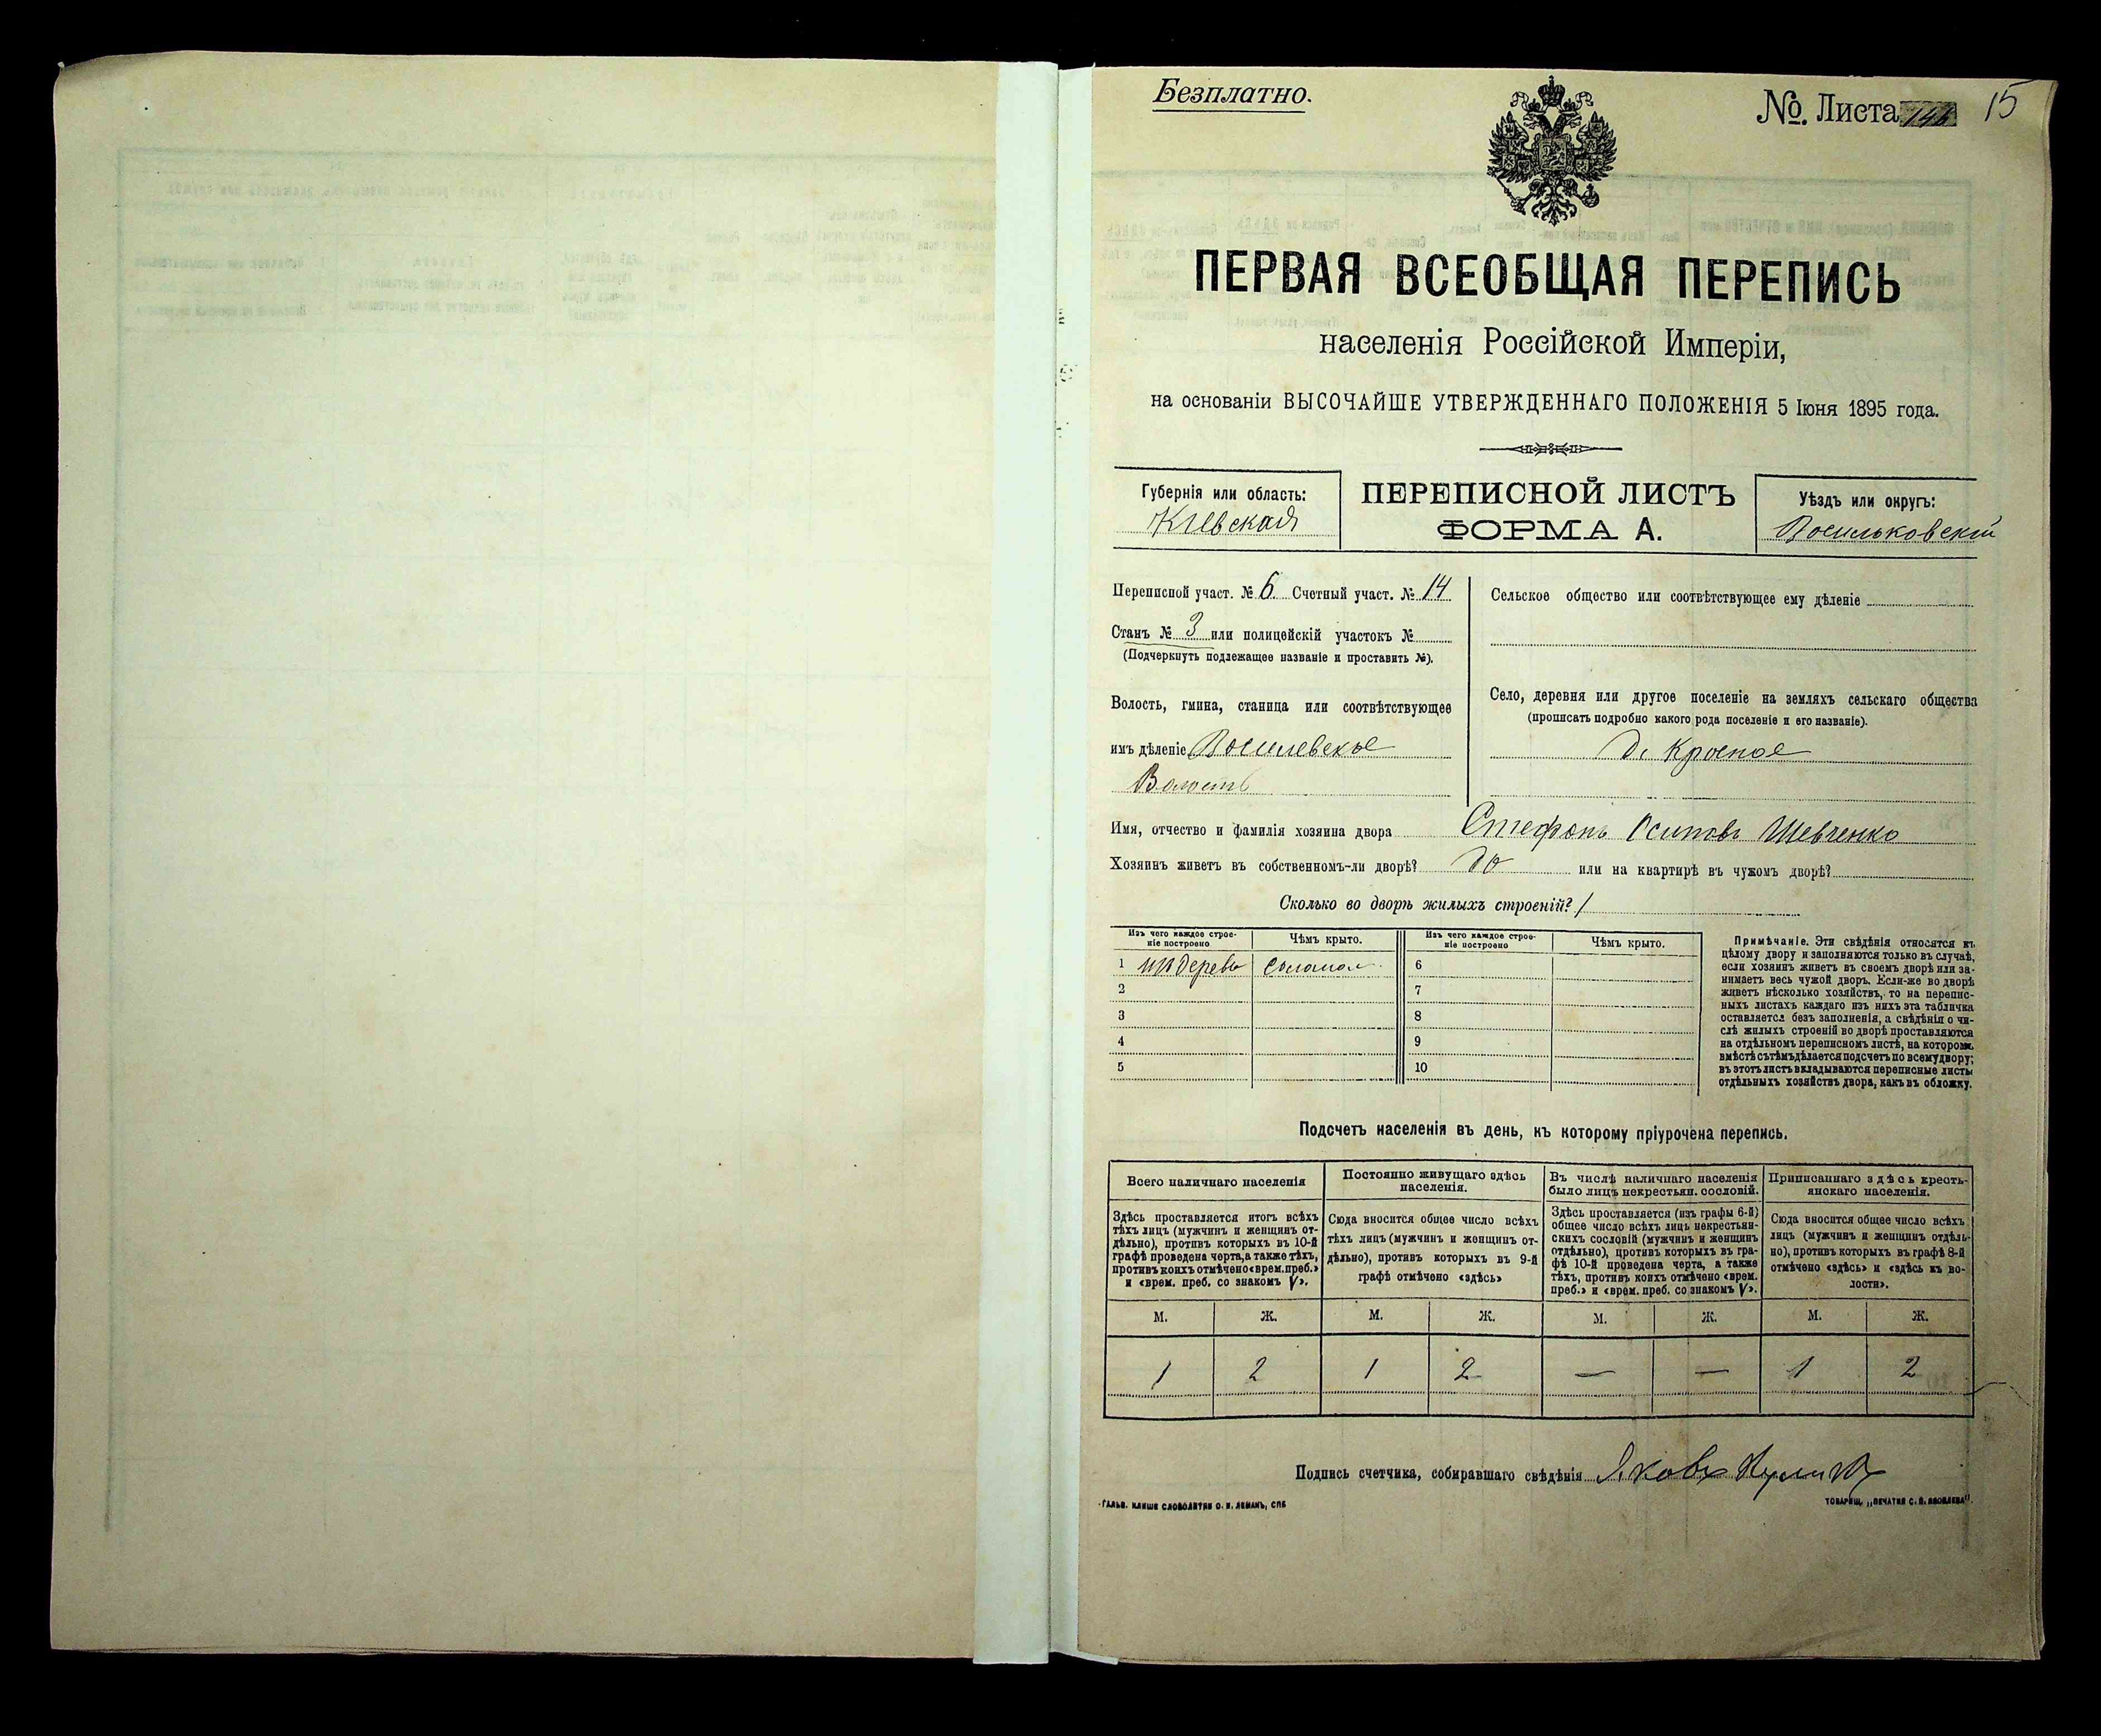 Безплатно.
№. Листа 15
ПЕРВАЯ ВСЕОБЩАЯ ПЕРЕПИСЬ
населенія Россійской Имперіи,
на основаніи ВЫСОЧАЙШЕ УТВЕРЖДЕННАГО ПОЛОЖЕНІЯ 5 Іюня 1895 года.
Губернія или область:
Кіевская
ПЕРЕПИСНОЙ ЛИСТЪ
ФОРМА А.
Уѣздъ или округъ:
Васильковскій
Переписной участ. № 6. Счетный участ. № 14
Станъ № 3 или полицейскій участокъ №
(Подчеркнуть подлежащее названіе и проставить №).
Волость, гмина, станица или соотвѣтствующее
имъ дѣленіе
Волость
Сельское общество или соотвѣтствующее ему дѣленіе
Село, деревня или другое поселеніе на земляхъ сельскаго общества
(прописать подробно какого рода поселеніе и его названіе).
д. Красное
Имя, отчество и фамилія хозяина двора Стефанъ Осиповъ Шевченко
Хозяинъ живетъ въ собственномъ-ли дворѣ? да или на квартирѣ въ чужомъ дворѣ?
Сколько во дворѣ жилыхъ строеній? 1
Изъ чего каждое строе-
ніе построено
Чѣмъ крыто.
Изъ чего каждое строе-
ніе построено
Чѣмъ крыто.
1 изъ дерева соломой 6
2 7
3 8
4 9
5 10
Примѣчаніе. Эти свѣдѣнія относятся къ
цѣлому двору и заполняются только въ случаѣ,
если хозяинъ живетъ въ своемъ дворѣ или за-
нимаетъ весь чужой дворъ. Если-же во дворѣ
живетъ нѣсколько хозяйствъ, то на перепис-
ныхъ листахъ каждаго изъ нихъ эта табличка
оставляется безъ заполненія, а свѣдѣнія о чи-
слѣ жилыхъ строеній во дворѣ проставляются
на отдѣльномъ переписномъ листѣ, на которомъ
вмѣстѣ съ тѣмъ дѣлается подсчетъ по всему двору;
въ этотъ листъ вкладываются переписные листы
отдѣльныхъ хозяйствъ двора, какъ въ обложку.
Подсчетъ населенія въ день, къ которому пріурочена перепись.
Всего наличнаго населенія
Здѣсь проставляется итогъ всѣхъ
тѣхъ лицъ (мужчинъ и женщинъ от-
дѣльно), противъ которыхъ въ 10-й
графѣ проведена черта, а также тѣхъ,
противъ коихъ отмѣчено «врем. преб.»
и «врем. преб. со знакомъ V».
Постоянно живущаго здѣсь
населенія.
Сюда вносится общее число всѣхъ
тѣхъ лицъ (мужчинъ и женщинъ от-
дѣльно), противъ которыхъ въ 9-й
графѣ отмѣчено «здѣсь»
Въ числѣ наличнаго населенія
было лицъ некрестьян. сословій.
Здѣсь проставляется (изъ графы 6-й)
общее число всѣхъ лицъ некрестьян-
скихъ сословій (мужчинъ и женщинъ
отдѣльно), противъ которыхъ въ гра-
фѣ 10-й проведена черта, а также
тѣхъ, противъ коихъ отмѣчено «врем.
преб.» и «врем. преб. со знакомъ V».
Приписаннаго здѣсь кресть-
янскаго населенія.
Сюда вносится общее число всѣхъ
лицъ (мужчинъ и женщинъ отдѣль-
но), противъ которыхъ въ графѣ 8-й
отмѣчено «здѣсь» и «здѣсь къ во-
лости».
М. Ж. М. Ж. М. Ж. М. Ж.
1 2 1 2 — — 1 2
Подпись счетчика, собиравшаго свѣдѣнія Яковъ
ГАЛЬВ. КЛИШЕ СЛОВОЛИТНИ О. И. ЛЕМАНЪ, СПБ
ТОВАРИЩ. „ПЕЧАТНЯ С. П. ЯКОВЛЕВА“.